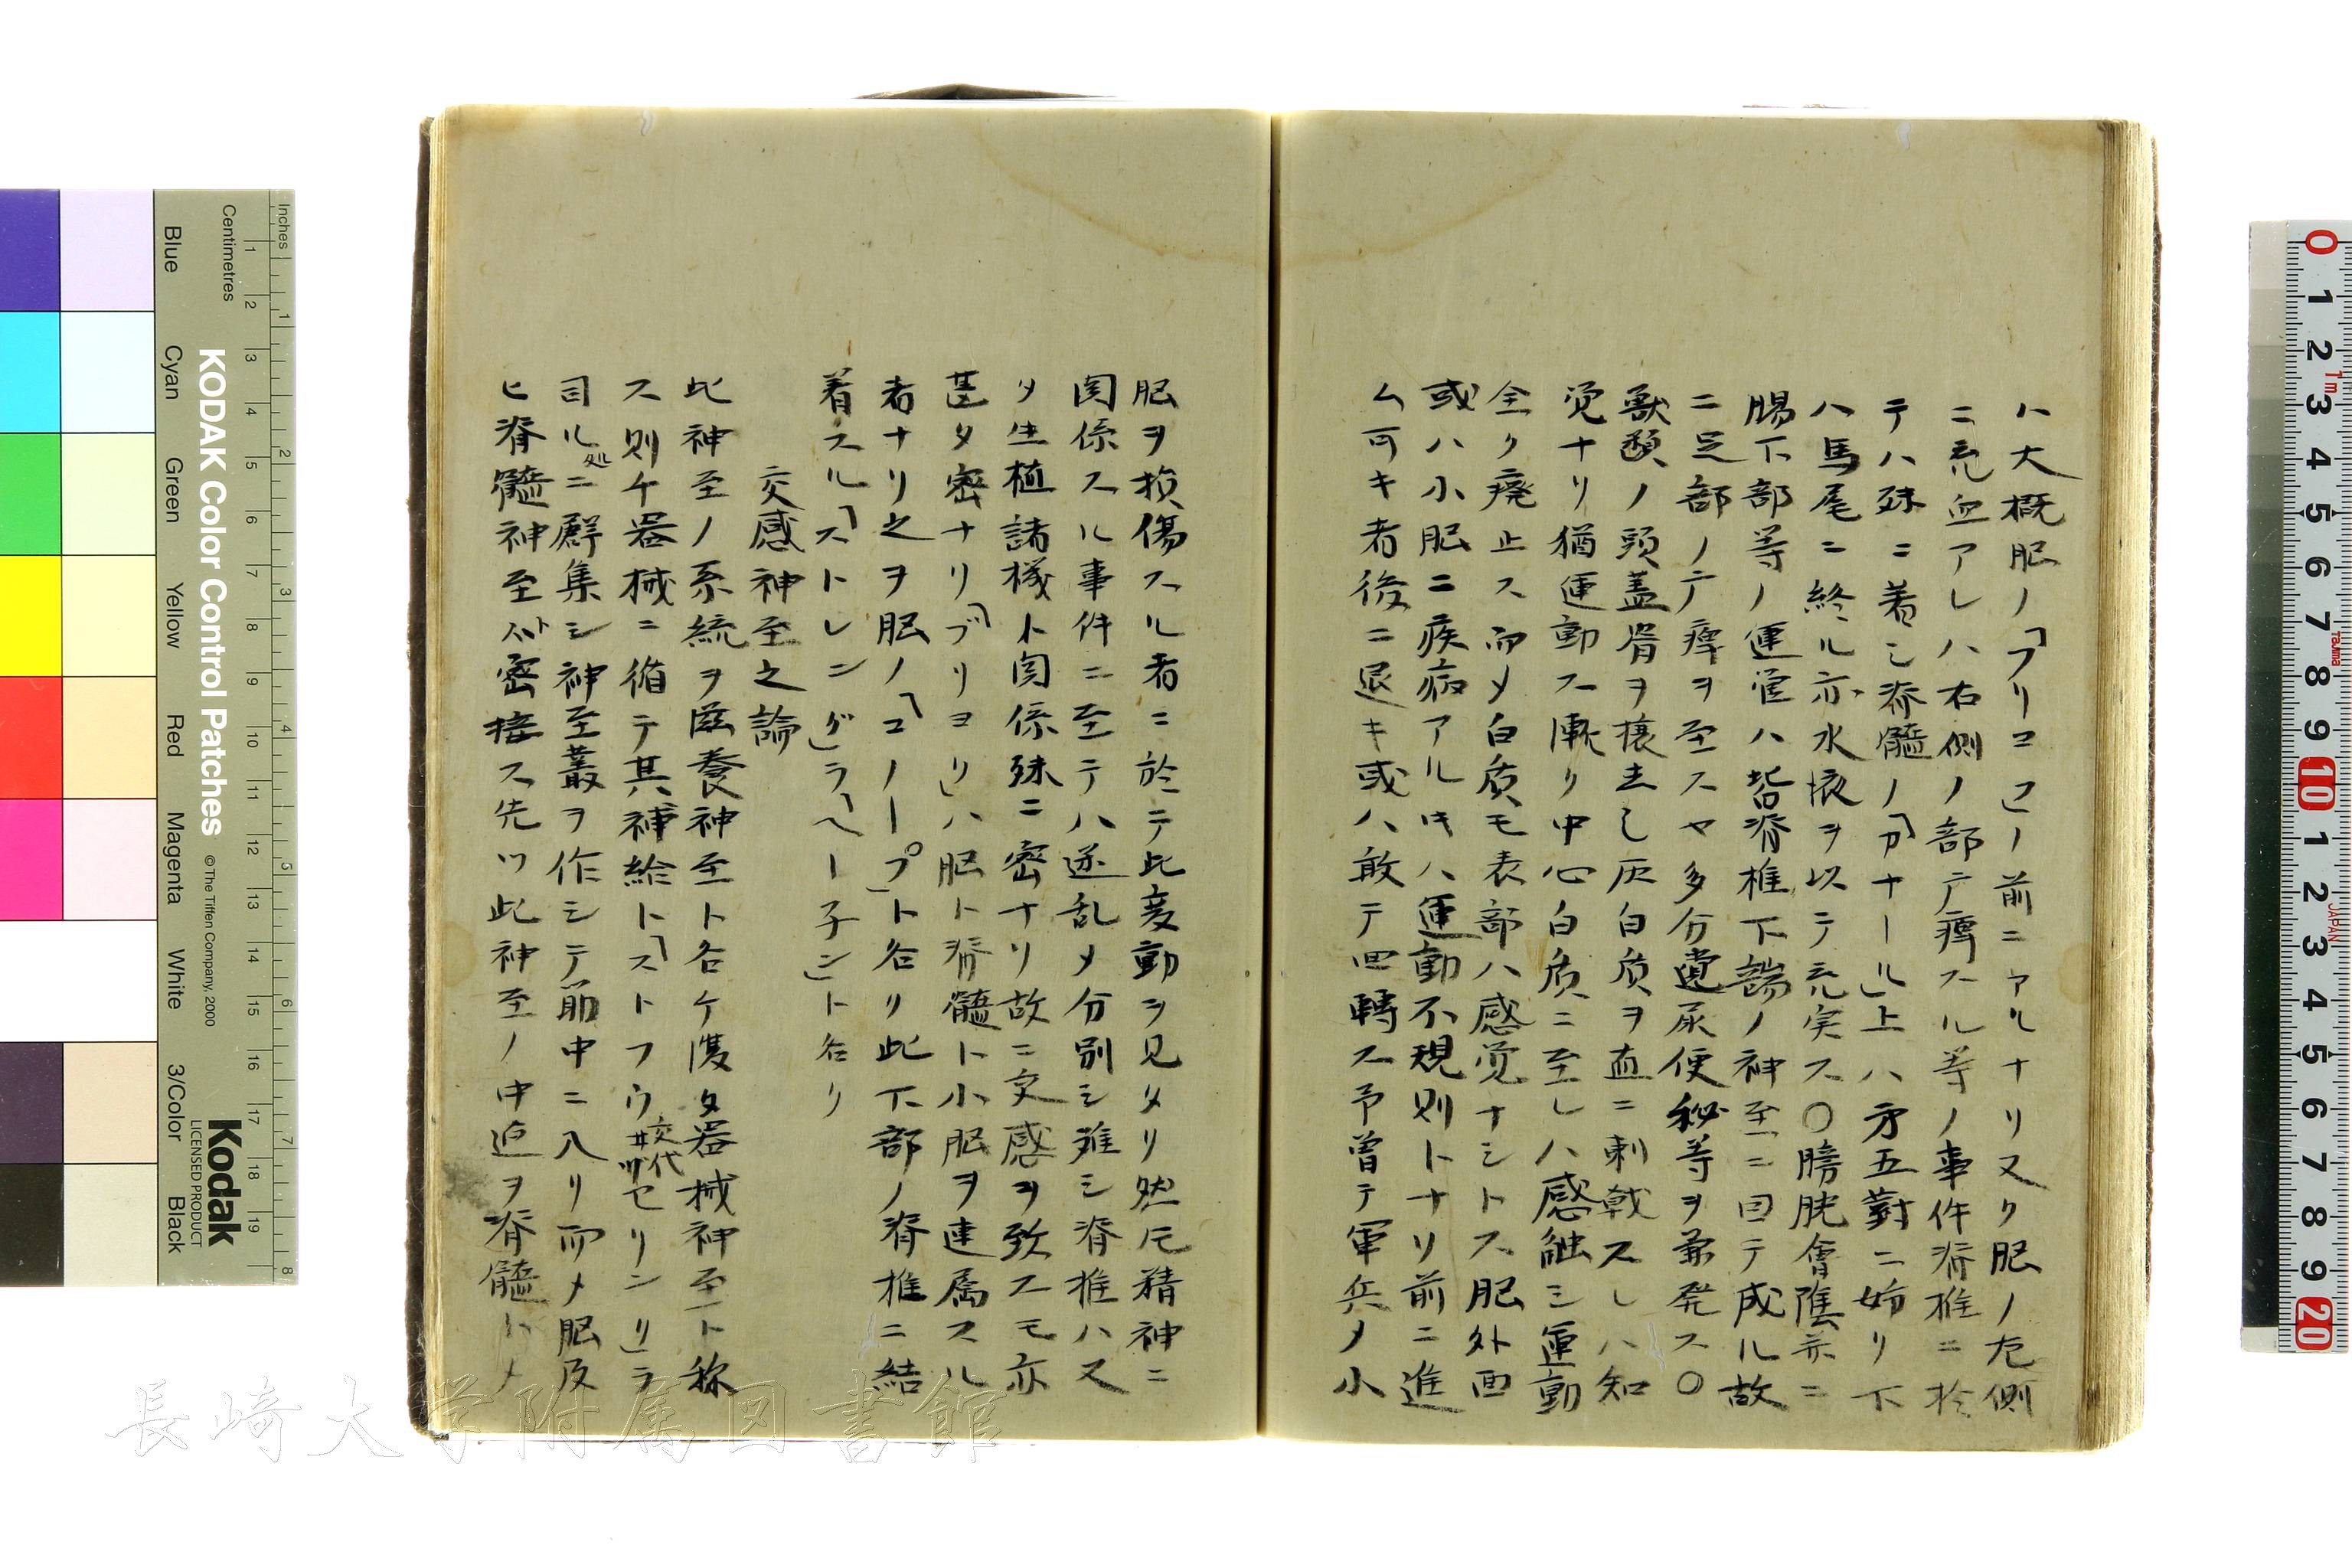 ハ大概脳ノ「フリコ」ノ前ニアルナリ又タ脳ノ左側
ニ充血アレハ右側ノ部广痺スル等ノ事件脊椎ニ於
テハ殊ニ着シ脊髄ノ「カナール」上ハ第五對ニ始リ下
ハ馬尾ニ終ル亦水液ヲ以テ充実ス〇膀胱會陰并ニ
腸下部等ノ運営ハ皆脊椎下端ノ神至ニ因テ成ル故
ニ足部ノ广痺ヲ至スヤ多分遺尿便秘等ヲ兼発ス〇
獣類ノ頭蓋骨ヲ攘去シ灰白质ヲ直ニ刺戟スレハ知
覚ナリ猶運動ス漸リ中心白质ニ至レハ感触シ運動
全ク廃止ス而メ白质モ表部ハ感覚ナシトス脳外面
或ハ小脳ニ疾病アル片ハ運動不規則トナリ前ニ進
ム可キ者後ニ退キ或ハ敢テ回轉ス予曽テ軍兵ノ小
脳ヲ損傷スル者ニ於テ此変動ヲ見タリ然𪜈精神ニ
関係スル事件ニ至テハ逐乱メ分別シ難シ脊椎ハ又
タ生植諸機ト関係殊ニ密ナリ故ニ交感ヲ致スモ亦
甚タ密ナリ「ブリヨリ」ハ脳ト脊髄ト小脳ヲ連属スル
者ナリ之ヲ脳ノ「コノープ」ト名リ此下部ノ脊椎ニ結
着スル「ストレング」ラ「ヘーネン」ト名リ
交感神至之論
此神至ノ系統ヲ滋養神至ト名ケ復タ器械神至ト称
ス則チ器械ニ循テ其補給ト「ストフウ井ツセリンリ」ラ
交代
司ル処ニ群集シ神至叢ヲ作シテ筋中ニ入リ而メ脳及
ヒ脊髄神至ト密接ス先ツ此神至ノ中迫ヲ脊髄トメ
KODAK Color Control Patches
© The Tiffen Company, 2000
Kodak
LICENSED PRODUCT
Inches
Centimetres
Blue
Cyan
Green
Yellow
Red
Magenta
White
3/Color
Black
長崎大学附属図書館